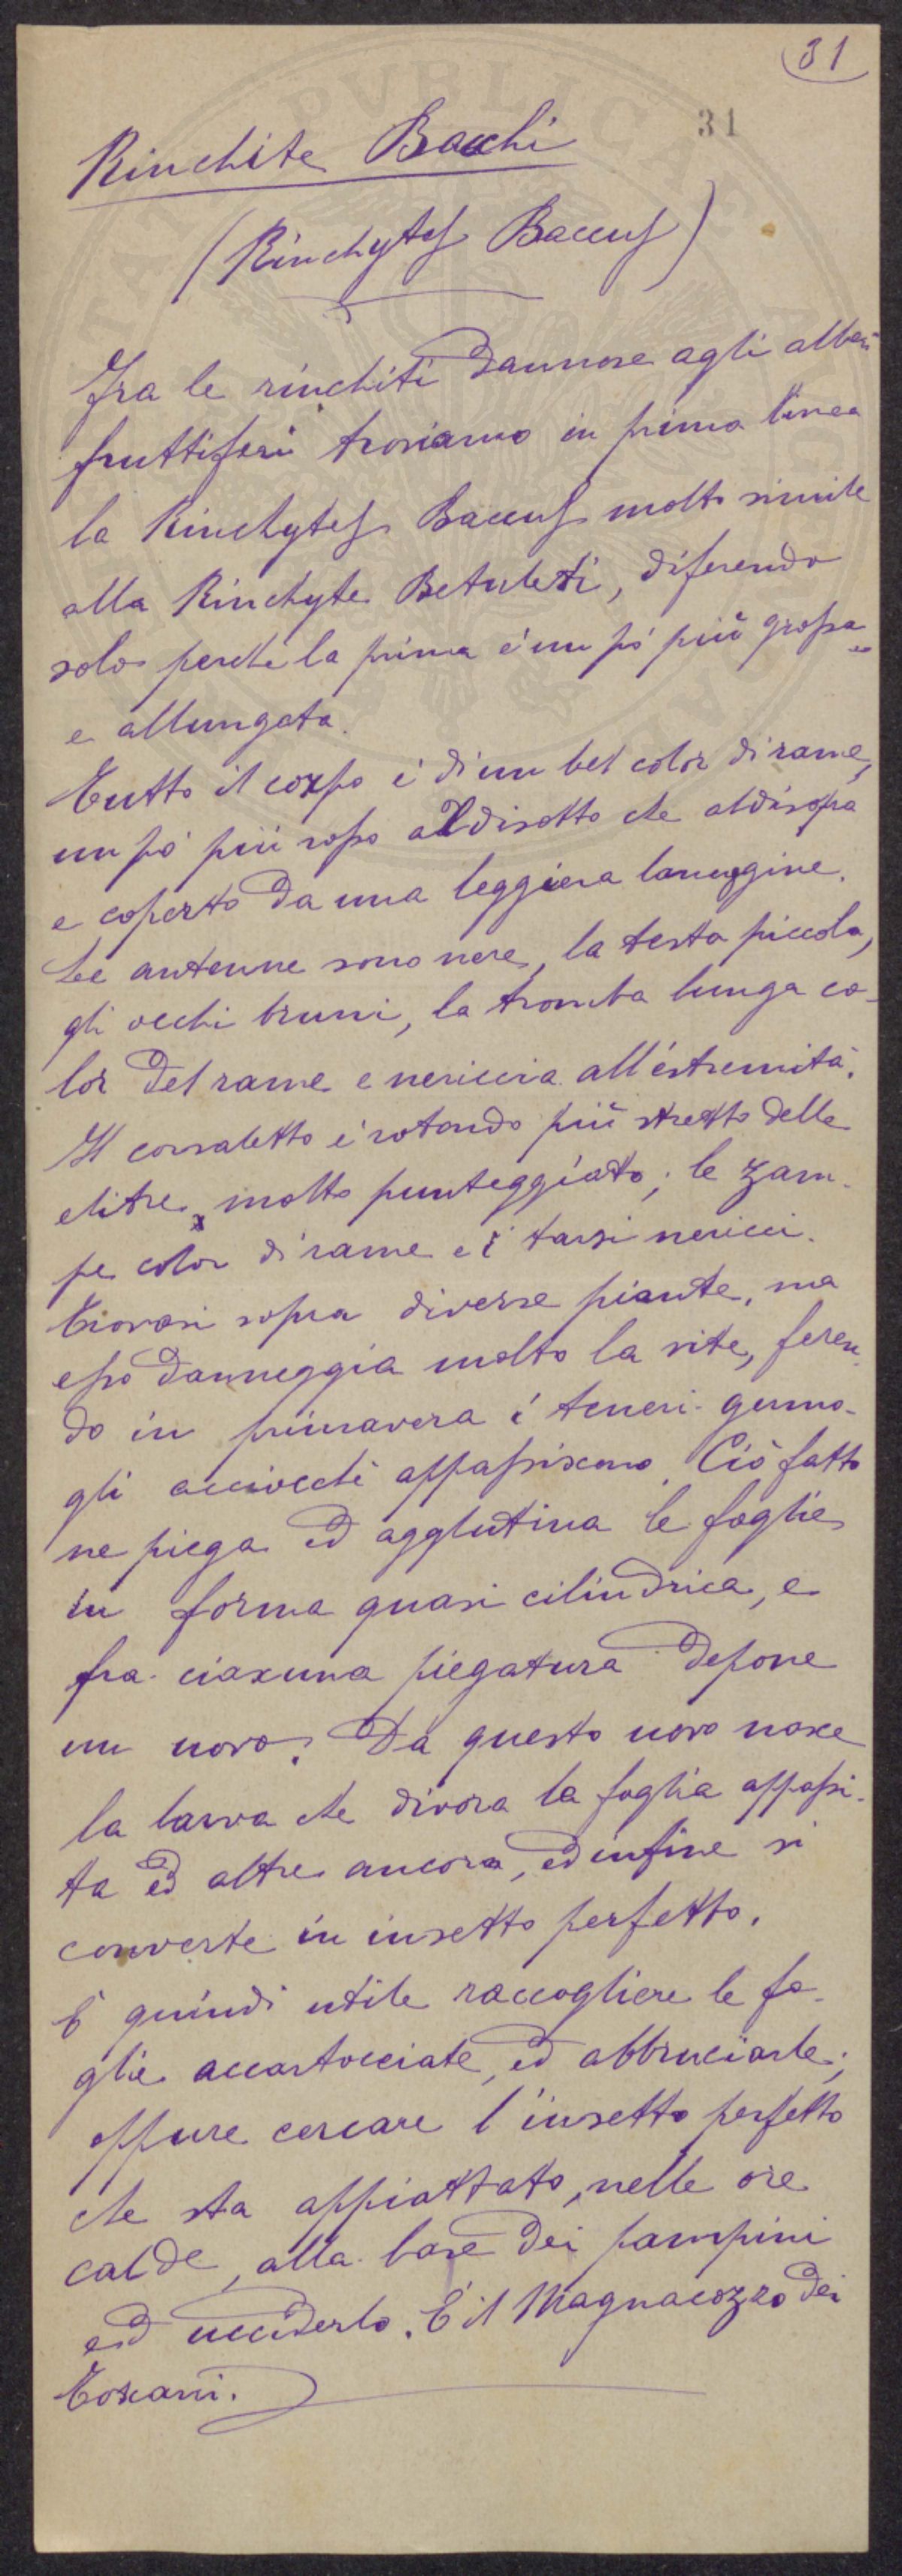 31
31
Rinchite Bacchi
(Rinchytes Baccus)
Fra le rinchiti dannose agli alberi
fruttiferi troviamo in prima linea
la Rinchytes Baccus molto simile
alla Rinchyte Betuleti, diferendo
solo perchè la prima è un pó più grossa
e allungata.
Tutto il corpo è di un bel color di rame,
un pó più rosso al disotto che al disopra
e coperto da una leggiera lanuggine.
Le antenne sono nere, la testa piccola,
gli occhi bruni, la tromba lunga co-
lor del rame e nericcia all'estremità.
Il corsaletto è rotondo più stretto delle
elitre, molto punteggiato; le zam-
pe color di rame e i tarsi nericci.
Trovasi sopra diverse piante, ma
esso danneggia molto la vite, feren-
do in primavera i teneri germo-
gli acciocchè appassiscono. Ciò fatto
ne piega ed agglutina le foglie
in forma quasi cilindrica, e
fra ciascuna piegatura depone
un uovo. Da questo uovo nasce
la larva che divora la foglia appassi-
ta ed altre ancora, ed infine si
converte in insetto perfetto.
È quindi utile raccogliere le fo-
glie accartocciate, ed abbruciarle;
oppure cercare l'insetto perfetto
che sta appiattato, nelle ore
calde, alla base dei pampini
ed ucciderlo. È il Magnacozzo dei
Toscani.